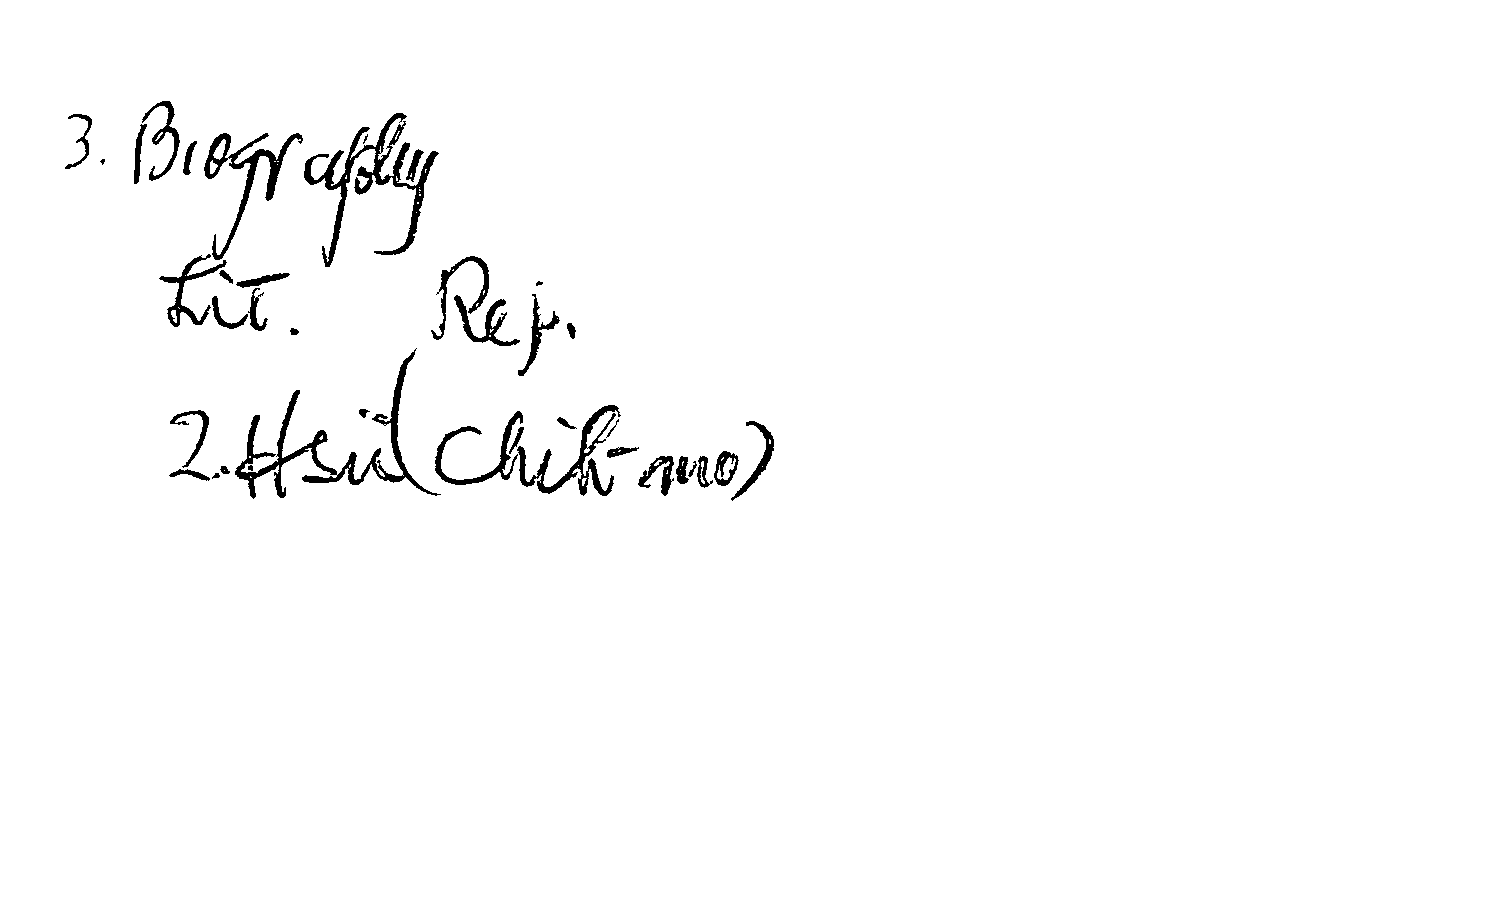 3. Biography
Lit. Rej.
2. Hsü (Chih-mo)